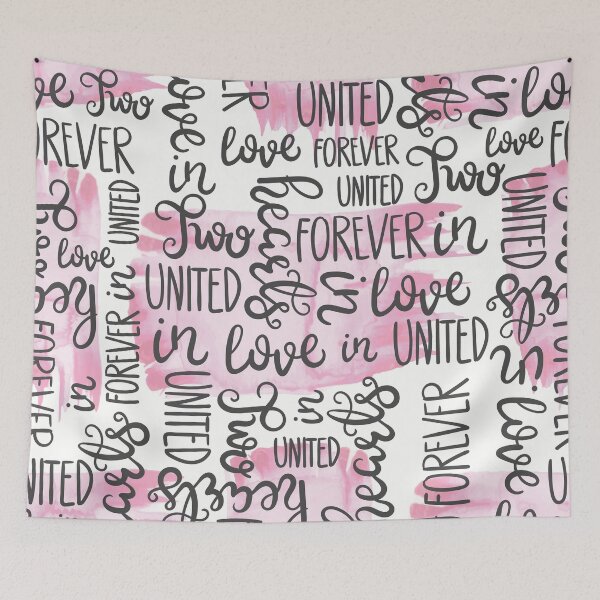 ove Two
UNITED
in love
OREVER
love in
love FOREVER
UNITED
Two
hearts
FOREVER
UNITED
love
Two
FOREVER in
UNITED
hearts
UNITED
in love
FOREVER in
in love in UNITED
hearts
FOREVER
in
UNITED
Two
in
UNITED
hearts
FOREVER
in love
FOREVER
NITED
earts
hearts
hearts